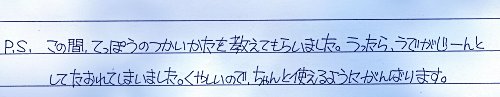 P.S. この間、てっぽうのつかいかたを教えてもらいました。うったら、うでがじーんと
してたおれてしまいました。くやしいので、ちゃんと使えるようにがんばります。